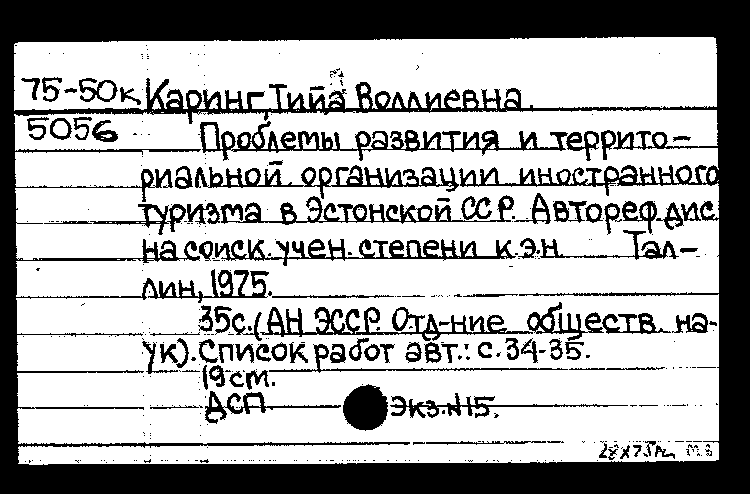 75-50к Каринг, Тийа Воллиевна.
5056 Проблемы развития и террито-
риальной организации иностранного
туризма в Эстонской ССР. Автореф.дис.
на соиск. учен. степени к.э.н. Тал-
лин, 1975.
35с. (АН ЭССР. Отд-ние обществ. на-
ук). Список работ авт.: с. 34-35.
19 см.
ДСП. Экз.№15.